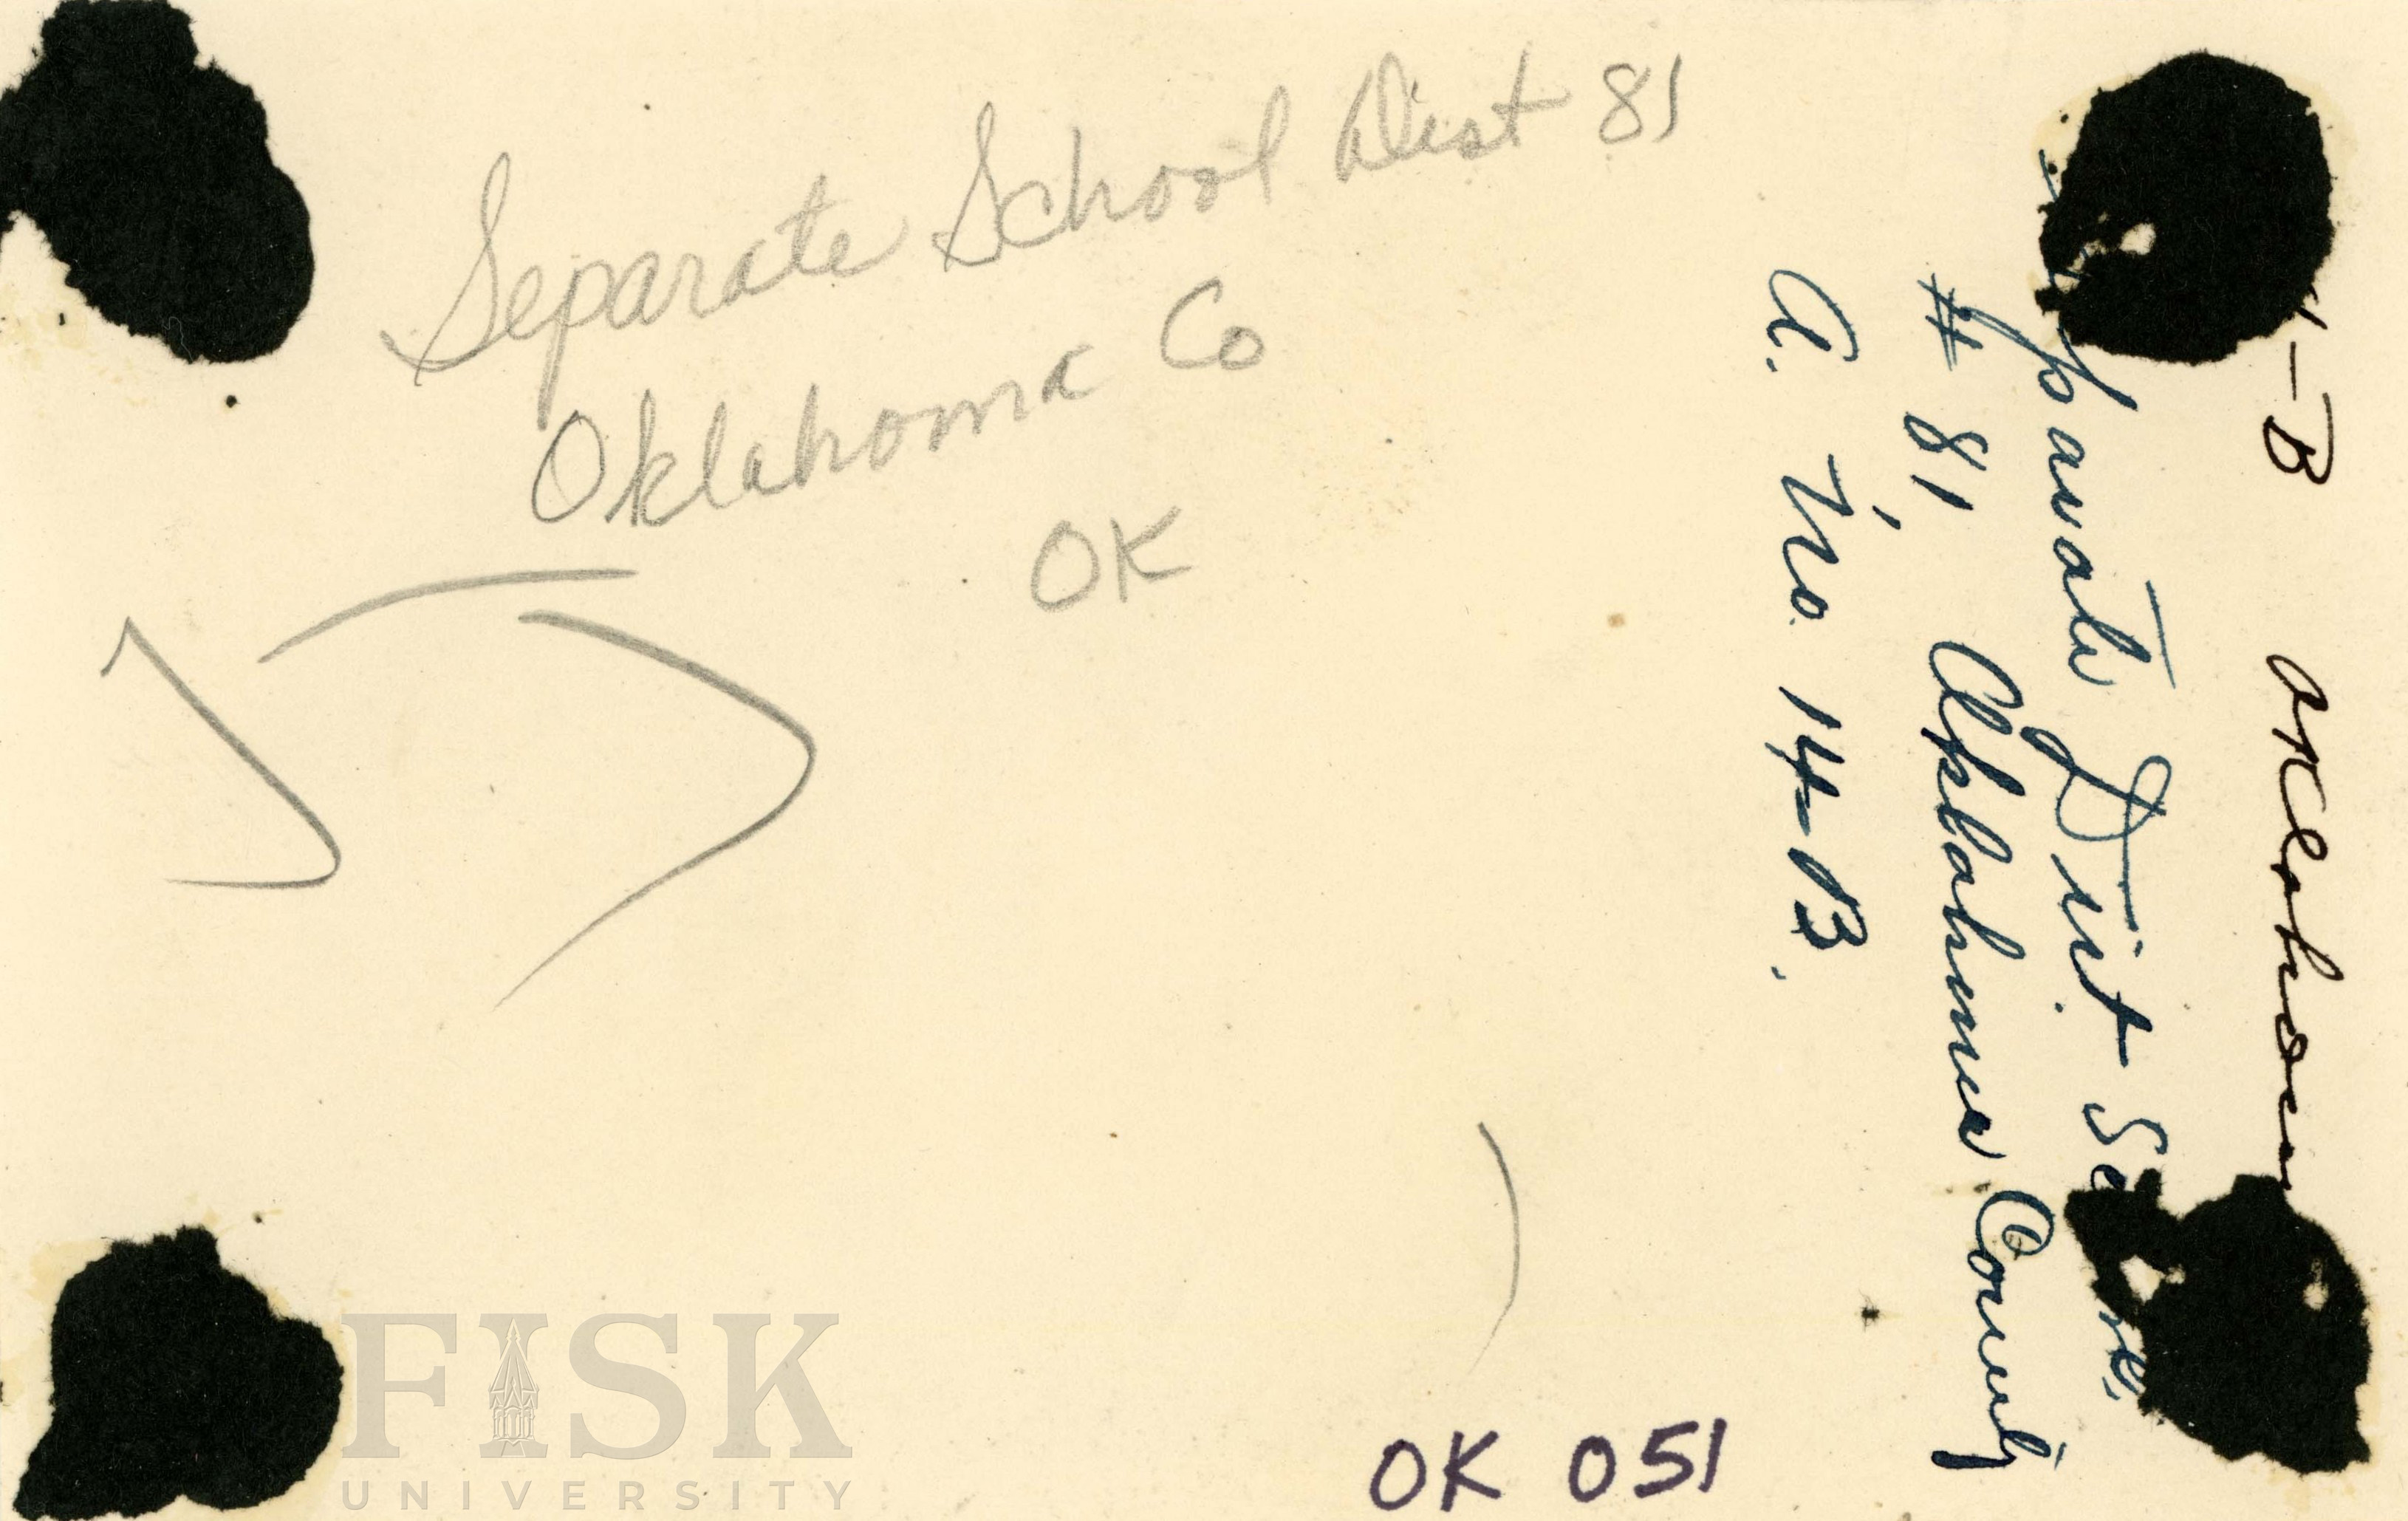 Separate School Dist 81
Oklahoma Co
OK
-B Oklahom
parate Dist. Sc
# 81, Oklahoma County
A. No. 14-B.
OK 051
FISK
UNIVERSITY